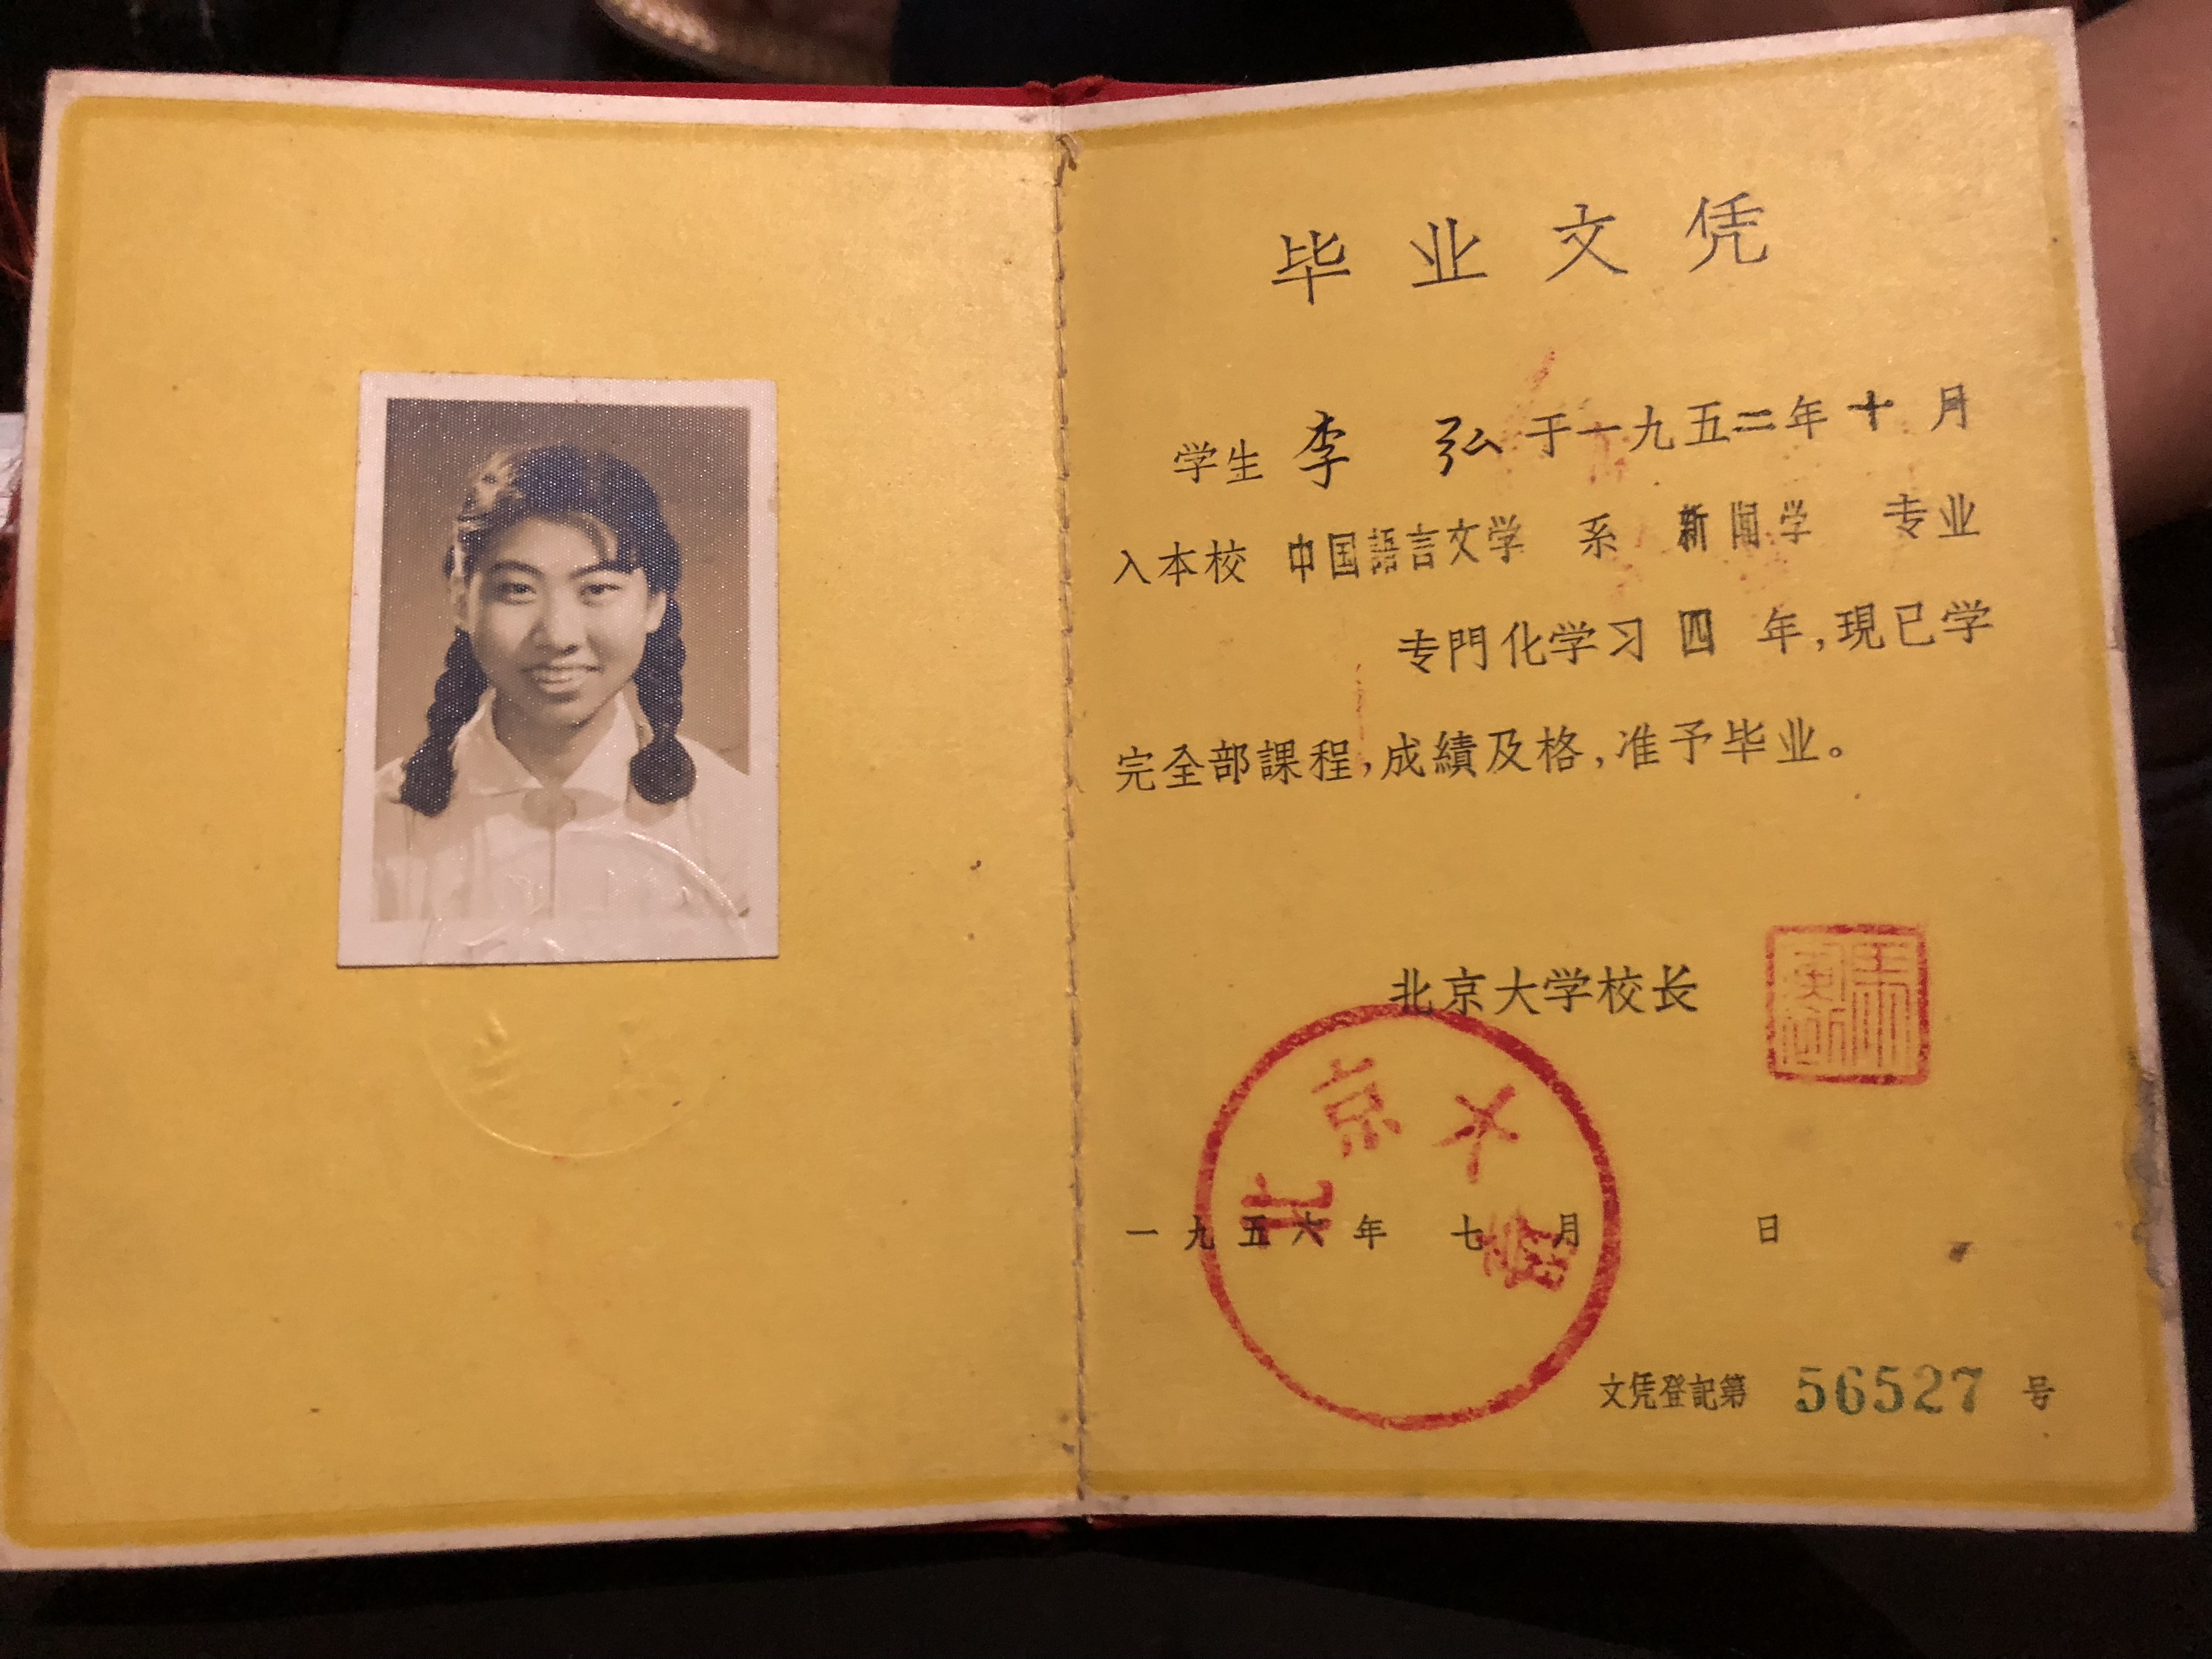 毕业文凭
学生 李 弘 于一九五二年十月
入本校 中国語言文学 系 新闻学 专业
专門化学习 四 年,現已学
完全部課程,成績及格,准予毕业。
北京大学校长
北京大學
一九五六年 七月 日
文凭登記第 56527 号